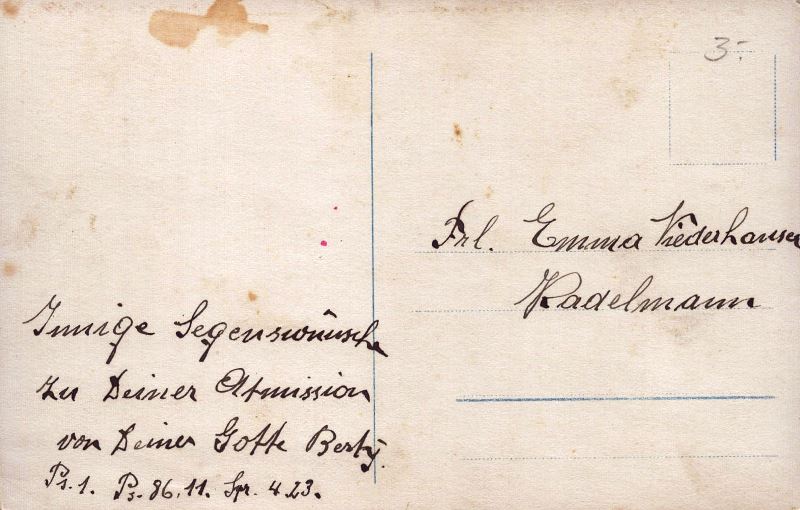 3.-
Frl. Emma Niederhauser
Kadelmann
Innige Segenswünsche
zu Deiner Atmission
von Deiner Gotte Berty.
Ps. 1. Ps. 86,11. Spr. 4.23.